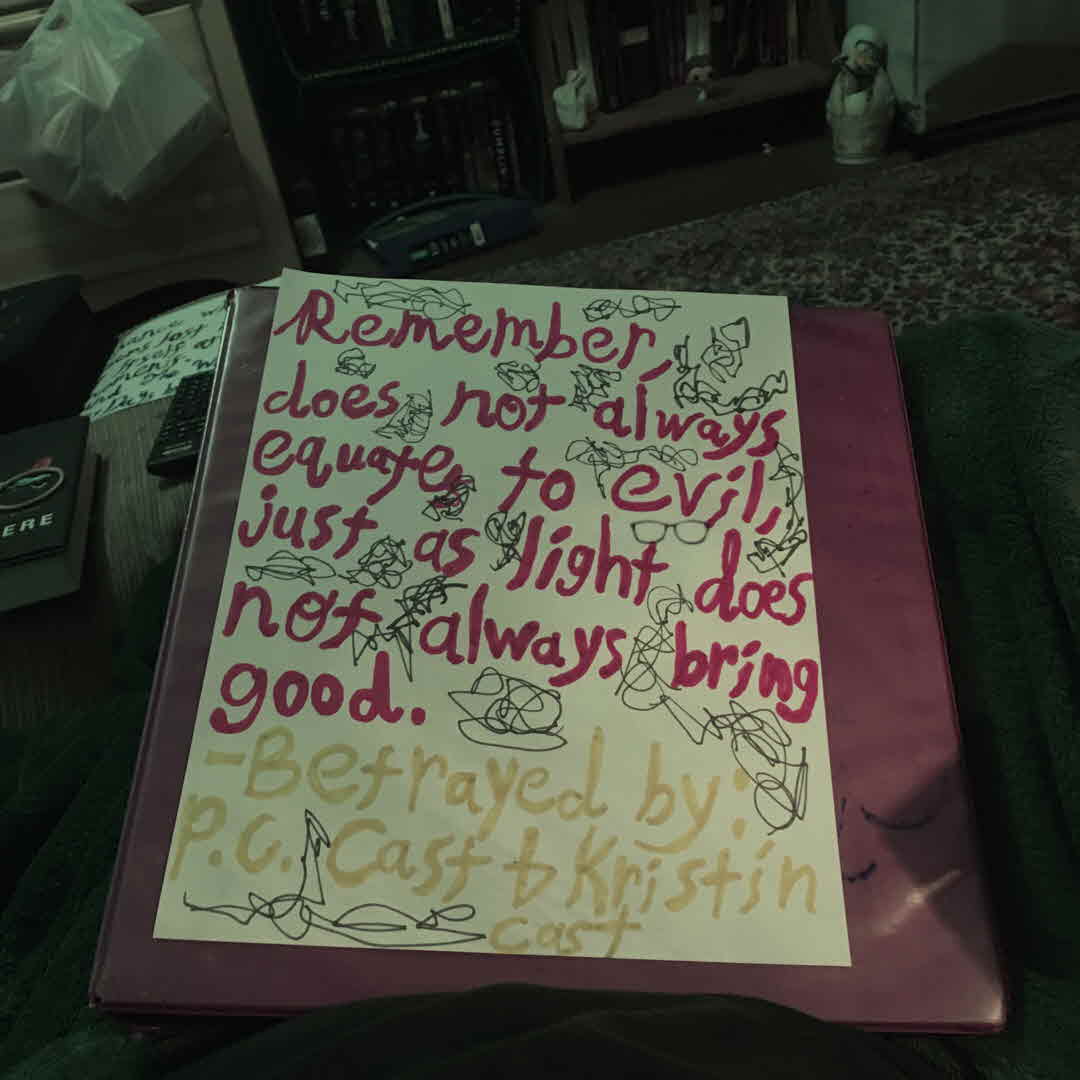 Remember,
does not always
equate to evil,
just as light does
not always bring
good.
-Betrayed by:
P.C. Cast & Kristin
Cast
ERE